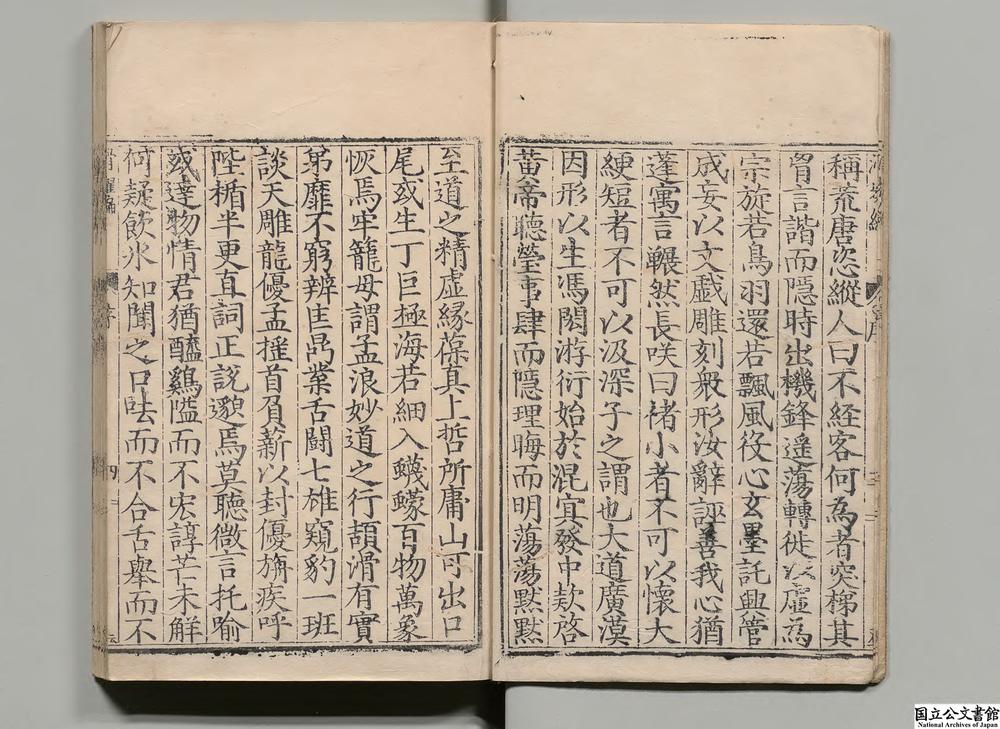 稱荒唐恣縱人曰不經客何為者突梯其
胷言諧而隱時出機鋒遥蕩轉徙以虛為
宗旋若鳥羽還若飄風役心玄墨託興管
城妄以文戲雕刻衆形汝辭誣善我心猶
蓬寓言囅然長咲曰褚小者不可以懐大
綆短者不可以汲深子之謂也大道廣漠
因形以生馮閎游衍始於混冥發中欵啓
黄帝聽瑩事肆而隱理晦而明蕩蕩默默
至道之精虛緣葆真上哲所庸山可出口
尾或生丁巨極海若細入蠛蠓百物萬象
恢焉牢籠毋謂孟浪妙道之行頡滑有實
弟靡不窮辨匡啇業舌鬪七雄窺豹一班
談天雕龍優孟揺首負薪以封優旃疾呼
陛楯半更直詞正説邈焉莫聽微言托喻
或達物情君猶醯鷄隘而不宏諄芒未解
何疑飲氷知聞之口呿而不合舌舉而不
四
国立公文書館
National Archives of Japan